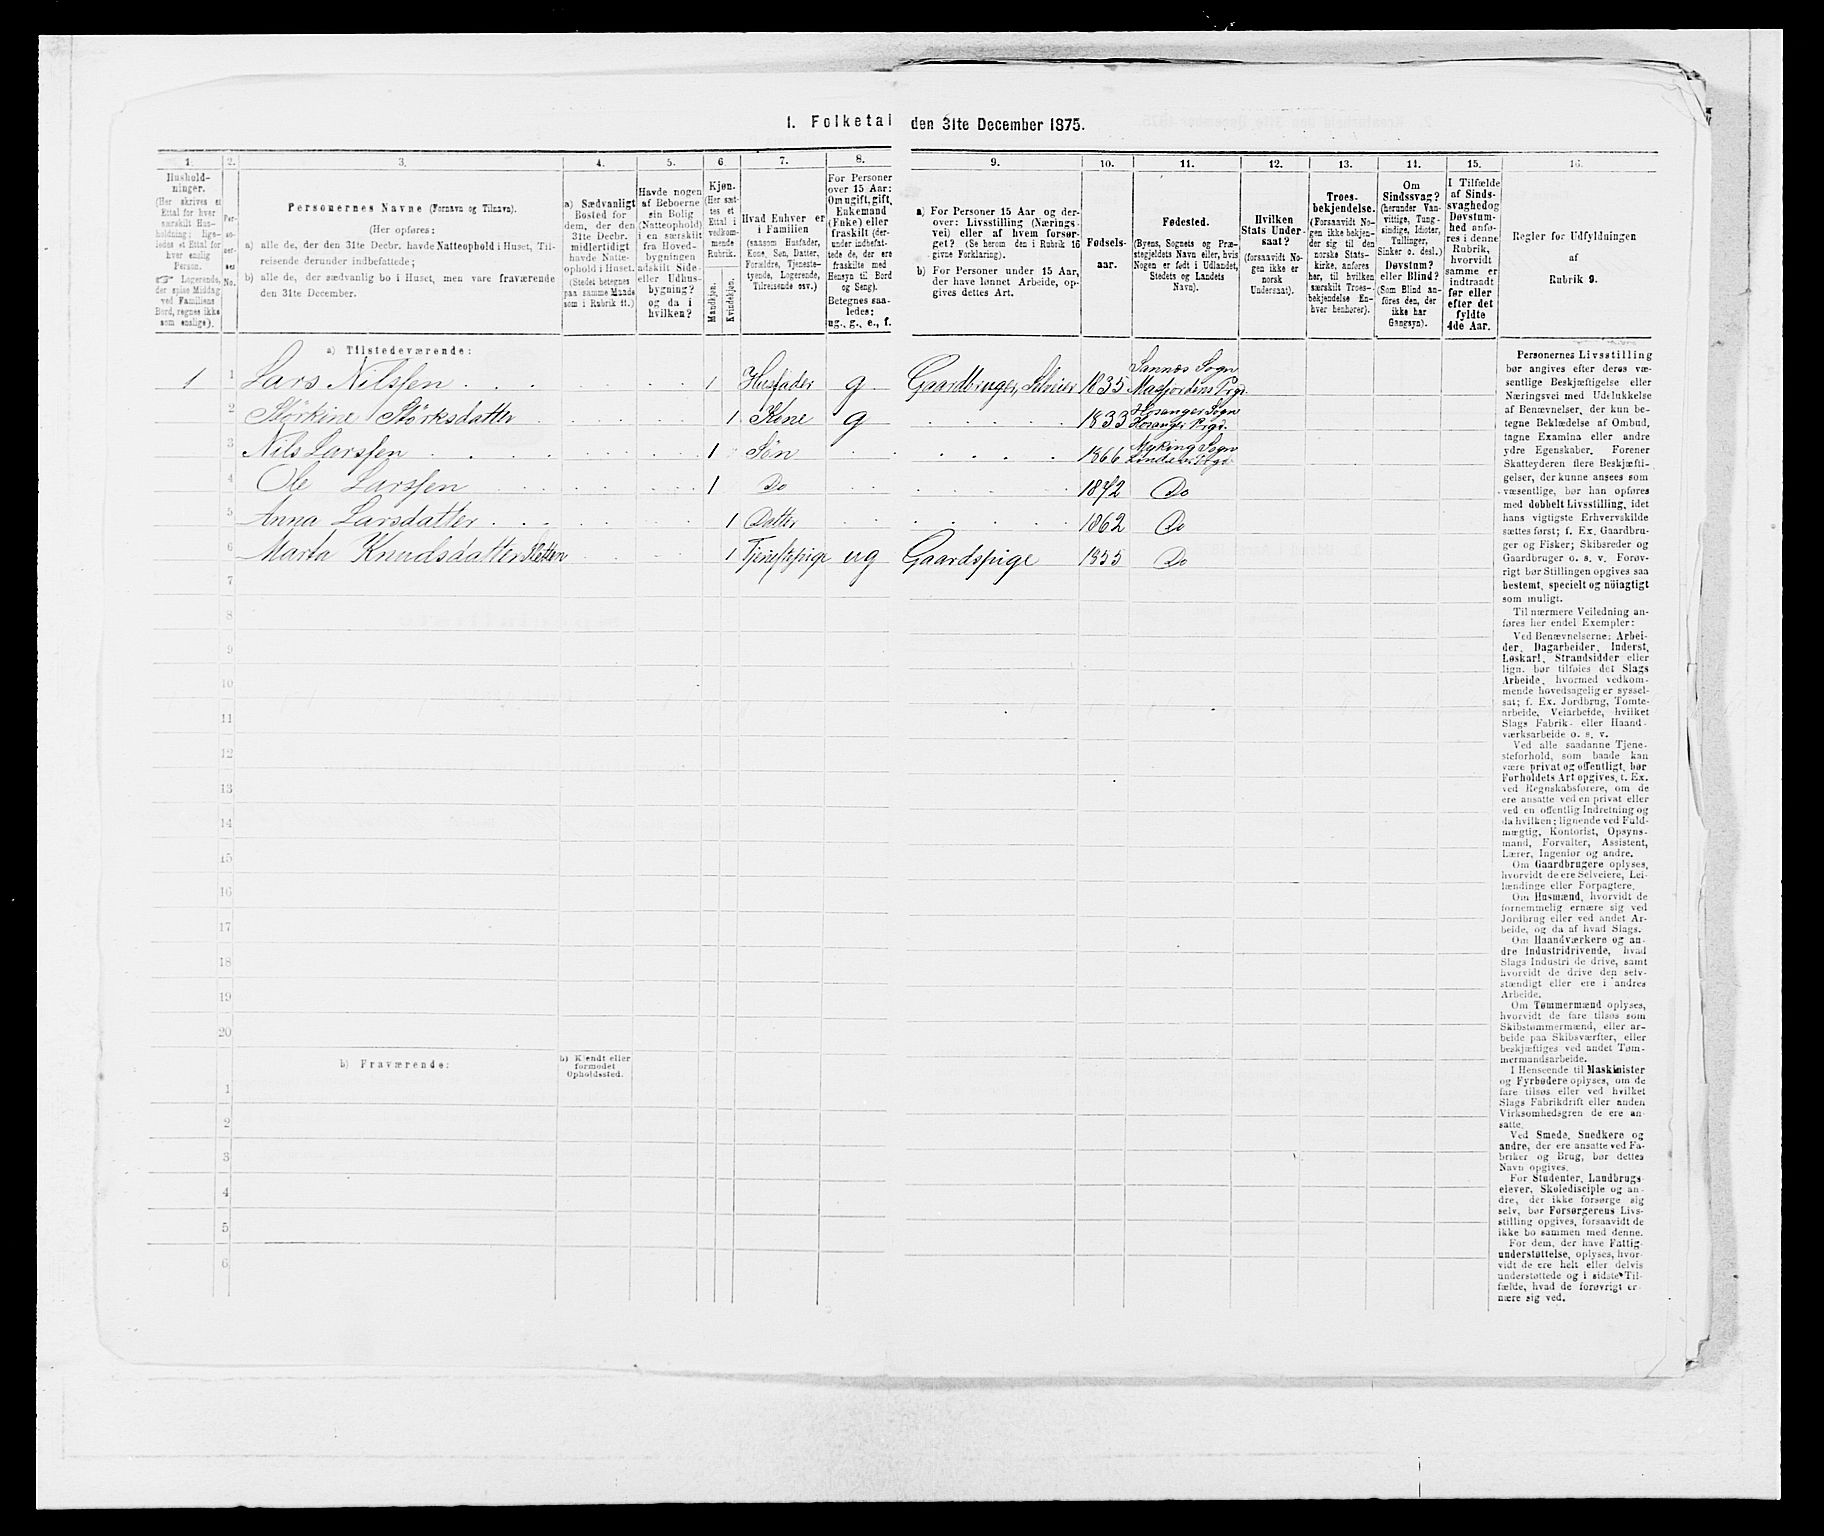 1. Folketal den 31te December 1875.
1.
2.
3.
4.
5.
6.
7.
8.
9.
10.
11.
12.
13.
14.
15.
16.
Hushold-
ninger.
(Her skrives et
Ettal for hver
særskilt Hus-
holdning; lige-
ledes et Ettal for
hver enslig
Person.
☞ Logerende,
der spise Middag
ved Familiens
Bord, regnes ikke
som enslige).
Per-
so-
ner-
nes
No.
Personernes Navne (Fornavn og Tilnavn).
(Her opføres:
a) alle de, der den 31te Decbr. havde Natteophold i Huset, Til-
reisende derunder indbefattede;
b) alle de, der sædvanlig bo i Huset, men vare fraværende
den 31te December.
a) Sædvanligt
Bosted for
dem, der den
31te Decbr.
midlertidigt
havde Natte-
ophold i Huset.
(Stedet betegnes
paa samme Maade
som i Rubrik 11.)
Havde nogen
af Beboerne
sin Bolig
(Natteophold)
i en særskilt
fra Hoved-
bygningen
adskilt Side-
eller Udhus-
bygning?
og da i
hvilken?
Kjøn.
(Her sæt-
tes et
Ettal i
vedkom-
mende
Rubrik.
Mandkjøn.
Kvindekjøn.
Hvad Enhver er
i Familien
(saasom Husfader,
Kone, Søn, Datter,
Forældre, Tjeneste-
tyende, Logerende,
Tilreisende osv.)
For Personer
over 15 Aar:
Om ugift, gift,
Enkemand
(Enke) eller
fraskilt (der-
under indbefat-
tede de, der ere
fraskilte med
Hensyn til Bord
og Seng).
Betegnes saa-
ledes:
ug., g., e., f.
a) For Personer 15 Aar og der-
over: Livsstilling (Nærings-
vei) eller af hvem forsør-
get? (Se herom den i Rubrik 16
givne Forklaring).
b) For Personer under 15 Aar,
der have lønnet Arbeide, op-
gives dettes Art.
Fødsels-
aar.
Fødested.
(Byens, Sognets og Præ-
stegjeldets Navn eller, hvis
Nogen er født i Udlandet,
Stedets og Landets
Navn).
Hvilken
Stats Under-
saat?
(forsaavidt No-
gen ikke er
norsk
Undersaat).
Troes-
bekjendelse.
(Forsaavidt No-
gen ikke bekjen-
der sig til den
norske Stats-
kirke, anføres
her, til hvilken
særskilt Troes-
bekjendelse En-
hver henhører).
Om
Sindssvag?
(herunder Van-
vittige, Tung-
sindige, Idioter,
Tullinger,
Sinker o. desl.)
Døvstum?
eller Blind?
(Som Blind an-
føres den, der
ikke har
Gangsyn).
I Tilfælde
af Sinds-
svaghed og
Døvstum-
hed anfø-
res i denne
Rubrik,
hvorvidt
samme er
indtraadt
før eller
efter det
fyldte
4de Aar.
Regler for Udfyldningen
af
Rubrik 9.
a) Tilstedeværende:
1 1 Lars Nilssen 1 Husfader g Gaardbruger, Selveier 1835 Sannæs Sogn
Masfjordens Prgd.
2 Störkine Störksdatter 1 Kone g 1833 Hosanger Sogn
Hosanger Prgd.
3 Nils Larssen 1 Søn 1866 Myking Sogn
Lindaas Prgd.
4 Ole Larssen 1 Do 1872 Do
5 Anna Larsdatter 1 Datter 1862 Do
6 Marta Knudsdatter 1 Tjenestpige ug Gaardspige 1855 Do
7
8
9
10
11
12
13
14
15
16
17
18
19
20
b) Fraværende:
b) Kjendt eller
formodet
Opholdssted.
1
2
3
4
5
6
Personernes Livsstilling
bør angives efter deres væ-
sentlige Beskjæftigelse eller
Næringsvei med Udelukkelse
af Benævnelser, der kun be-
tegne Beklædelse af Ombud,
tagne Examina eller andre
ydre Egenskaber. Forener
Skatteyderen flere Beskjæfti-
gelser, der kunne ansees som
væsentlige, bør han opføres
med dobbelt Livsstilling, idet
hans vigtigste Erhvervskilde
sættes først; f. Ex. Gaardbru-
ger og Fisker; Skibsreder og
Gaardbruger o. s. v. Forøv-
rigt bør Stillingen opgives saa
bestemt, specielt og nöiagtigt
som muligt.
Til nærmere Veiledning an-
føres her endel Exempler:
Ved Benævnelserne: Arbei-
der, Dagarbeider, Inderst,
Løskarl, Strandsidder eller
lign. bør tilføies det Slags
Arbeide, hvormed vedkom-
mende hovedsagelig er syssel-
sat; f. Ex. Jordbrug, Tomte-
arbeide, Veiarbeide, hvilket
Slags Fabrik- eller Haand-
værksarbeide o. s. v.
Ved alle saadanne Tjene-
steforhold, som baade kan
være privat og offentligt, bør
Forholdets Art opgives, t. Ex.
ved Regnskabsførere, om de
ere ansatte ved en privat eller
ved en offentlig Indretning og
da hvilken; lignende ved Fuld-
mægtig, Kontorist, Opsyns-
mand, Forvalter, Assistent,
Lærer, Ingeniør og andre.
Om Gaardbrugere oplyses,
hvorvidt de ere Selveiere, Lei-
lændinge eller Forpagtere.
Om Husmænd, hvorvidt de
fornemmelig ernære sig ved
Jordbrug eller ved andet Ar-
beide, og da af hvad Slags.
Om Haandværkere og an-
dre Industridrivende, hvad
Slags Industri de drive, samt
hvorvidt de drive den selv-
stændigt eller ere i andres
Arbeide.
Om Tømmermænd oplyses,
hvorvidt de fare tilsøs som
Skibstømmermænd, eller ar-
beide paa Skibsværfter, eller
beskjæftiges ved andet Tøm-
mermandsarbeide.
I Henseende til Maskinister
og Fyrbødere oplyses, om de
fare tilsøs eller ved hvilket
Slags Fabrikdrift eller anden
Virksomhedsgren de ere an-
satte.
Ved Smede, Snedkere og
andre, der ere ansatte ved Fa-
briker og Brug, bør dettes
Navn opgives.
For Studenter, Landbrugs-
elever, Skoledisciple og an-
dre, der ikke forsørge sig
selv, bør Forsørgerens Livs-
stilling opgives, forsaavidt de
ikke bo sammen med denne.
For dem, der have Fattig-
understøttelse, oplyses, hvor-
vidt de ere helt eller delvis
understøttede og i sidste Til-
fælde, hvad de forøvrigt er-
nære sig ved.